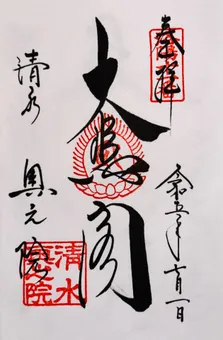 奉拝
令和五年 月一日
大悲閣
清水
奥之院
清水
奥院